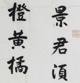 景君須
橙黄橘